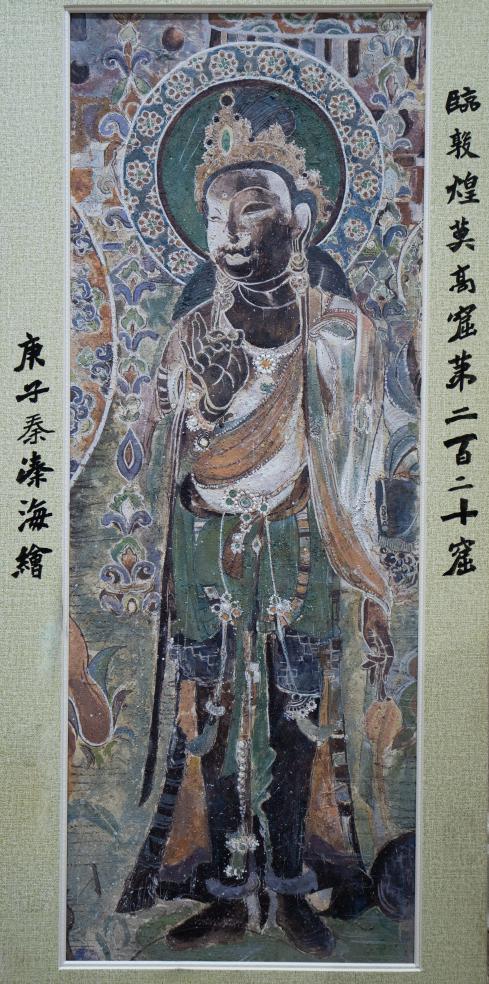 臨敦煌莫高窟第二百二十窟
庚子秦溱海繪